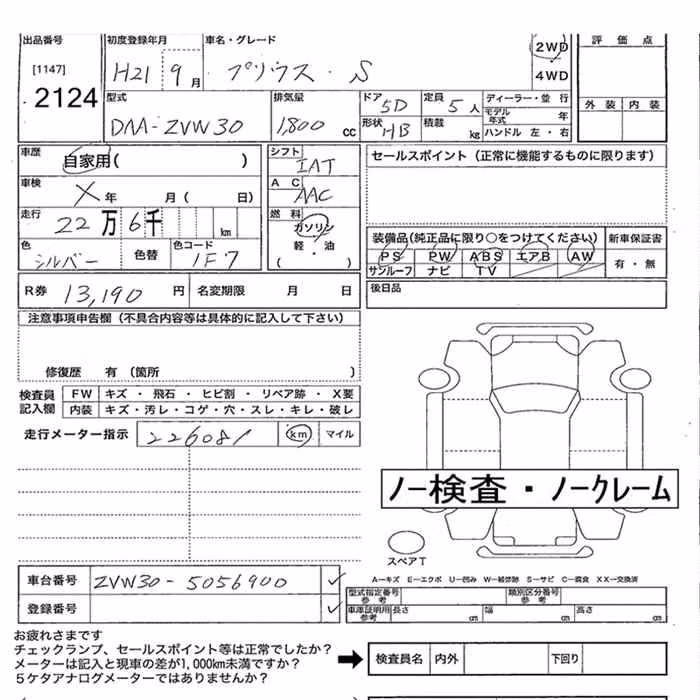 出品番号 初度登録年月 車名・グレード 2WD 評価点
[1147] H21 9月 プリウス・S ・
2124 4WD
型式 排気量 ドア 5D 定員 5人 ディーラー・並行 外装 内装
DAA-ZVW30 1,800cc 形状 HB 積載 kg モデル年式 年
ハンドル 左・右
車歴 自家用( ) シフト IAT セールスポイント（正常に機能するものに限ります）
車検 X年 月( 日) AC AAC
走行 22万6千 km 燃料 ガソリン・軽・油 ( )
色 シルバー 色替 色コード 1F7
装備品（純正品に限り○をつけてください） 新車保証書
PS PW ABS エアB AW 有・無
サンルーフ ナビ TV
R券 13,190円 名変期限 月 日 後日品
注意事項申告欄（不具合内容等は具体的に記入して下さい）
修復歴 有（箇所 ）
検査員記入欄 FW キズ・飛石・ヒビ割・リペア跡・X要
内装 キズ・汚レ・コゲ・穴・スレ・キレ・破レ
走行メーター指示 226081 km マイル
ノー検査・ノークレーム
スペアT
A－キズ E－エクボ U－凹み W－補修跡 S－サビ C－腐食 XX－交換済
車台番号 ZVW30-5056900
型式指定番号参考 類別区分番号参考
登録番号 車庫証明用参考 長さ cm 幅 cm 高さ cm
お疲れさまです
チェックランプ、セールスポイント等は正常でしたか？
メーターは記入と現車の差が1,000km未満ですか？
５ケタアナログメーターではありませんか？
検査員名 内外 下回り